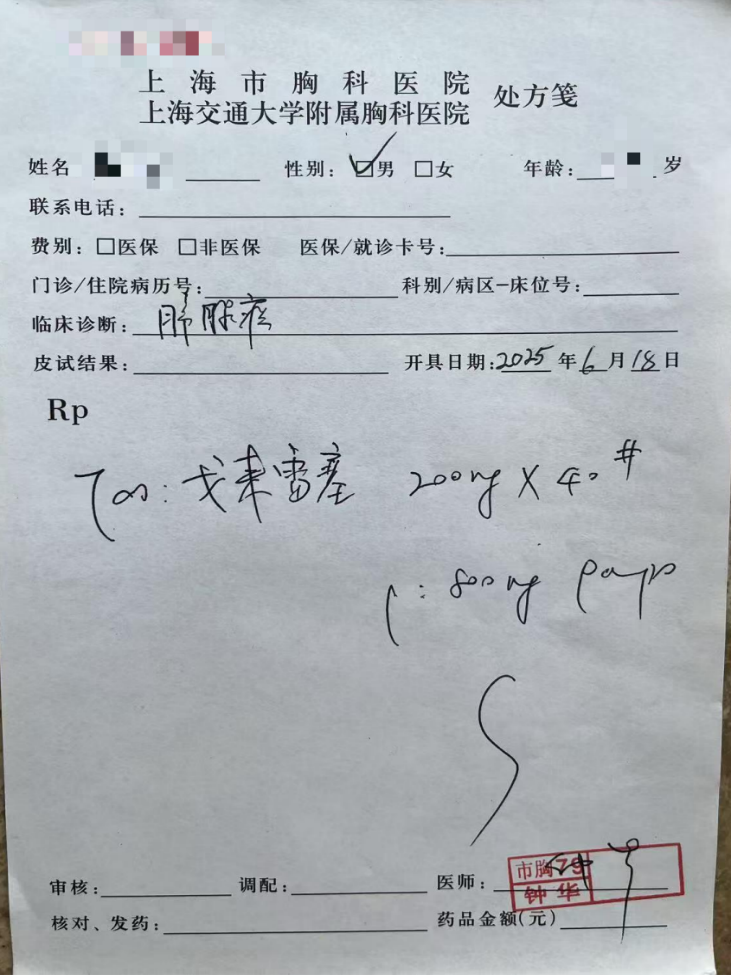 上海市胸科医院
上海交通大学附属胸科医院 处方笺
姓名 性别: ☑男 □女 年龄: 岁
联系电话:
费别: □医保 □非医保 医保/就诊卡号:
门诊/住院病历号: 科别/病区-床位号:
临床诊断: 肺腺癌
皮试结果: 开具日期: 2025 年 6 月 18 日
Rp
戈来雷塞 200mg X 40#
: 800mg
审核: 调配: 医师: 市胸
钟华
核对、发药: 药品金额(元)